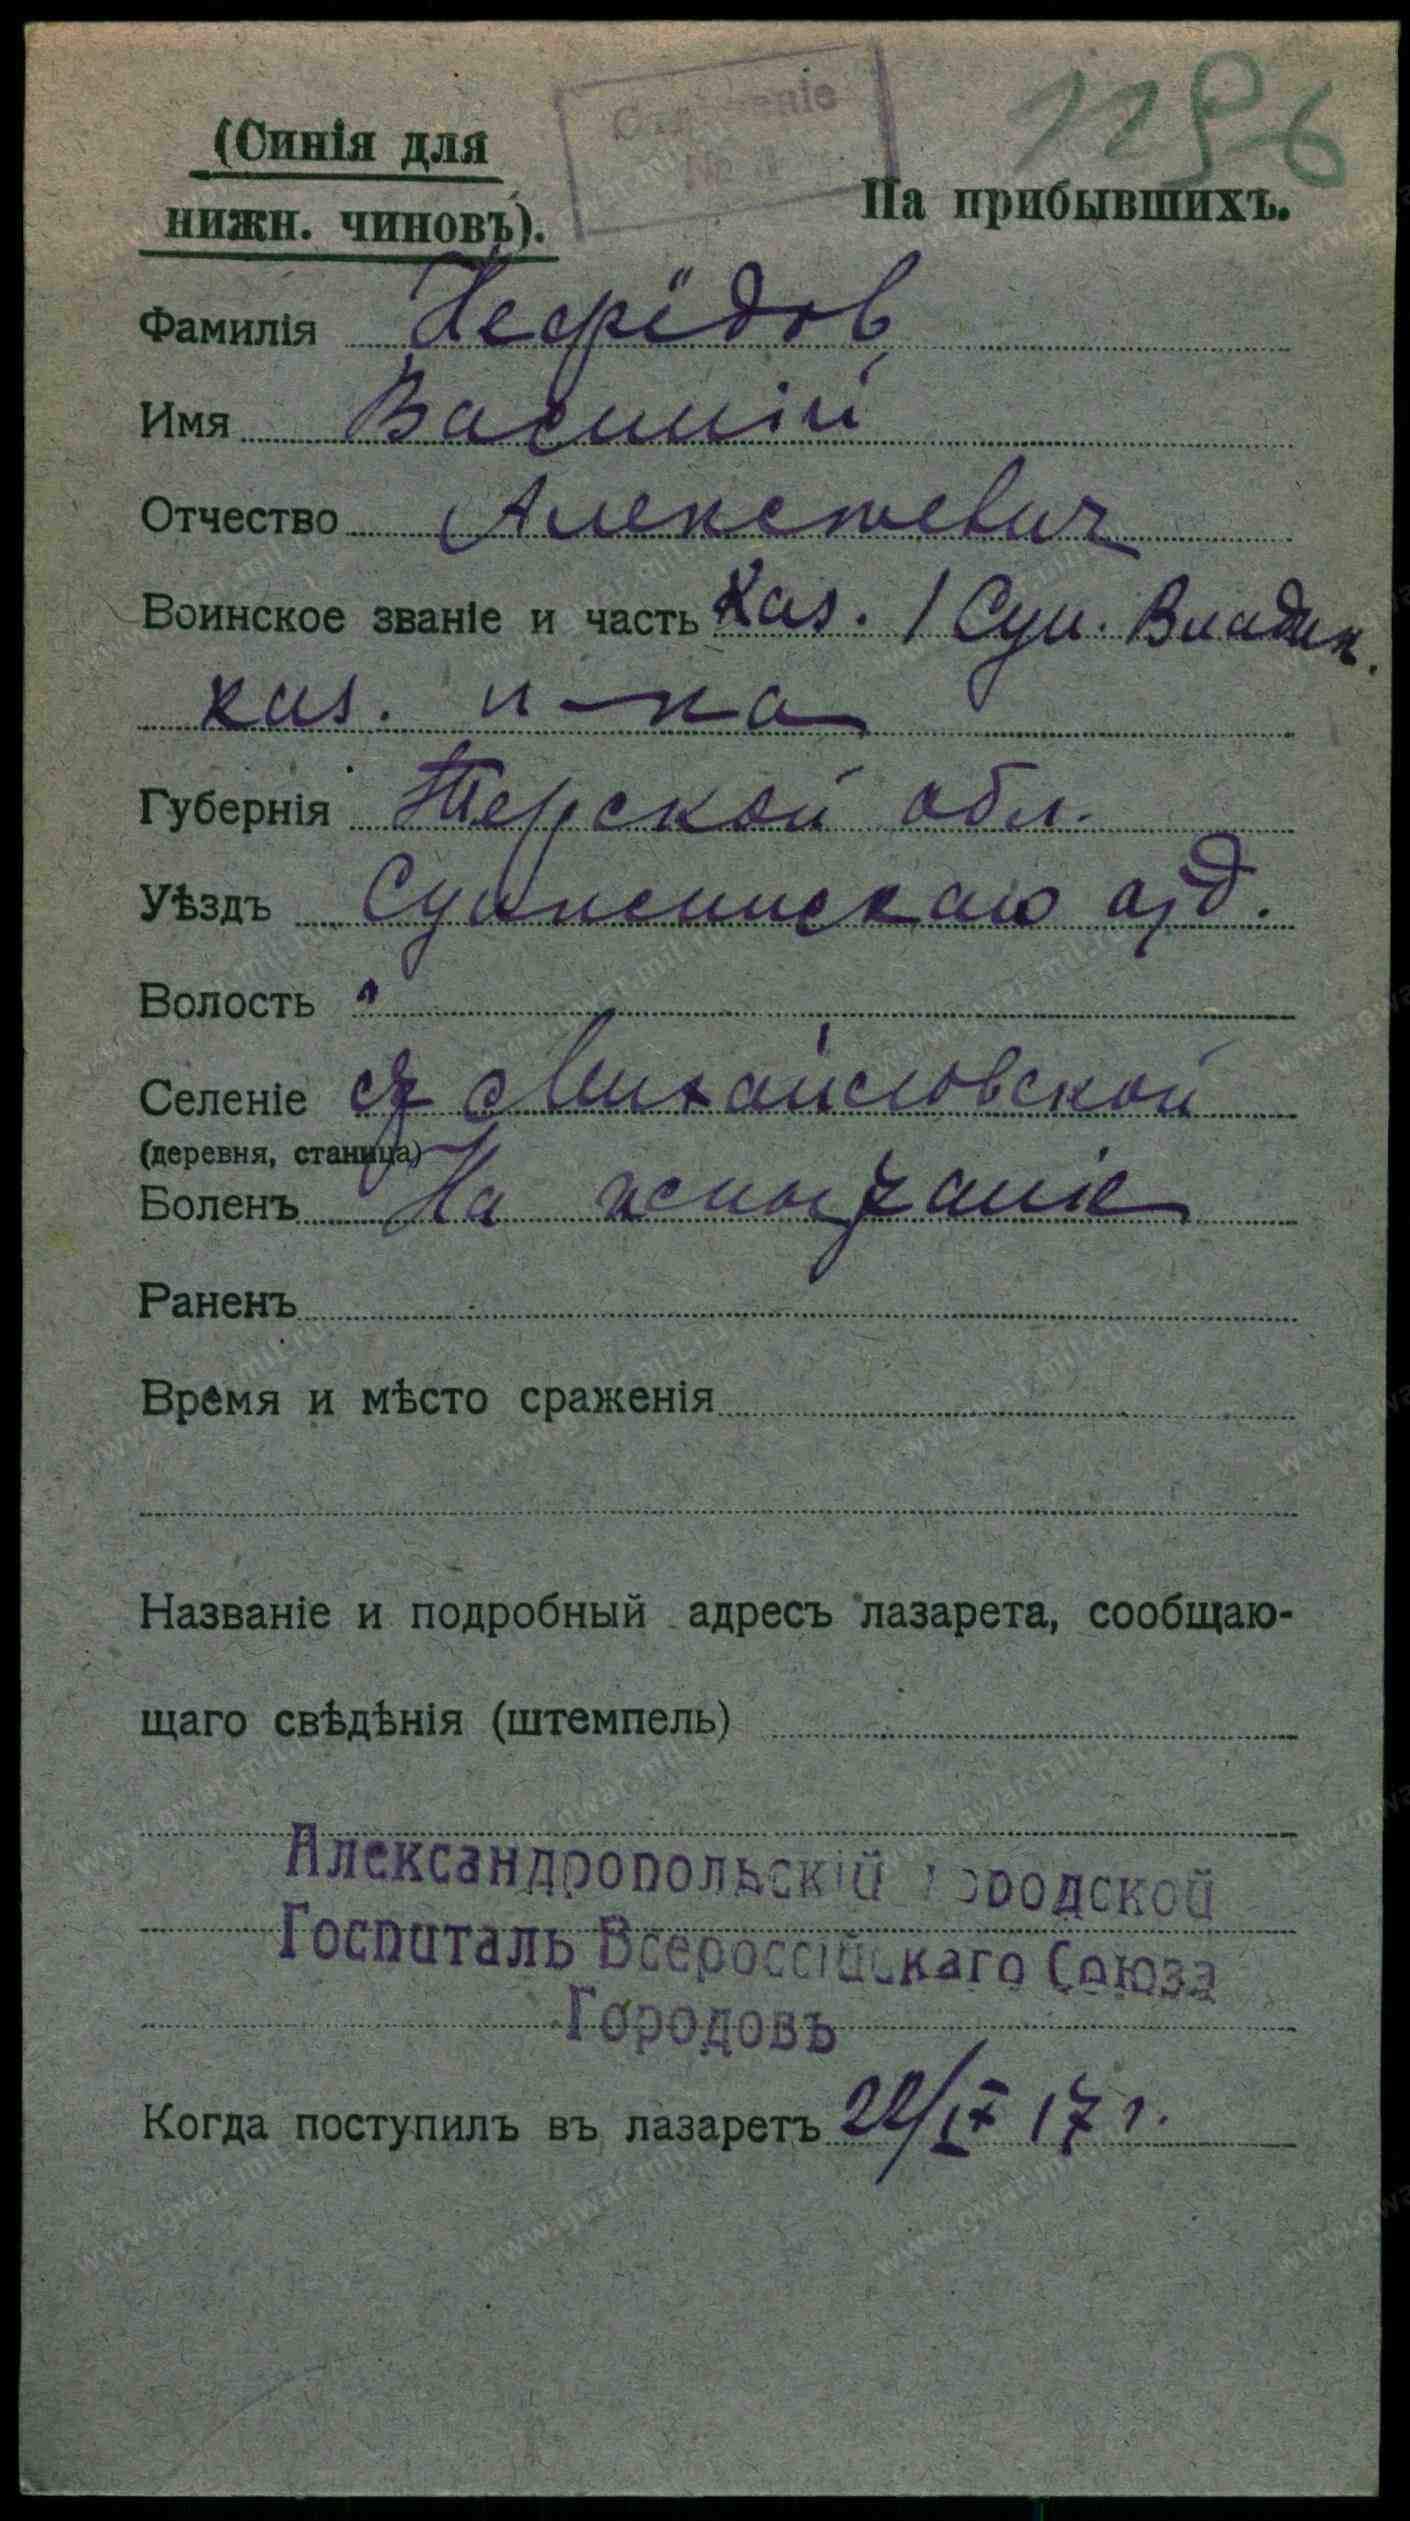 1196
(Синія для
нижн. чиновъ).
На прибывшихъ.
Фамилія Нефёдов
Имя Василій
Отчество Алексѣевич
Воинское званіе и часть Каз. 1 Сун. Владик.
каз. п-ка
Губернія Терской обл.
Уѣздъ Сунженскаго отд.
Волость "
Селеніе ст. Михайловской
(деревня, станица)
Боленъ На испытаніе
Раненъ
Время и мѣсто сраженія
Названіе и подробный адресъ лазарета, сообщаю-
щаго свѣдѣнія (штемпель)
Александропольскій Городской
Госпиталь Всероссійскаго Союза
Городовъ
Когда поступилъ въ лазаретъ 22/IX 17 г.